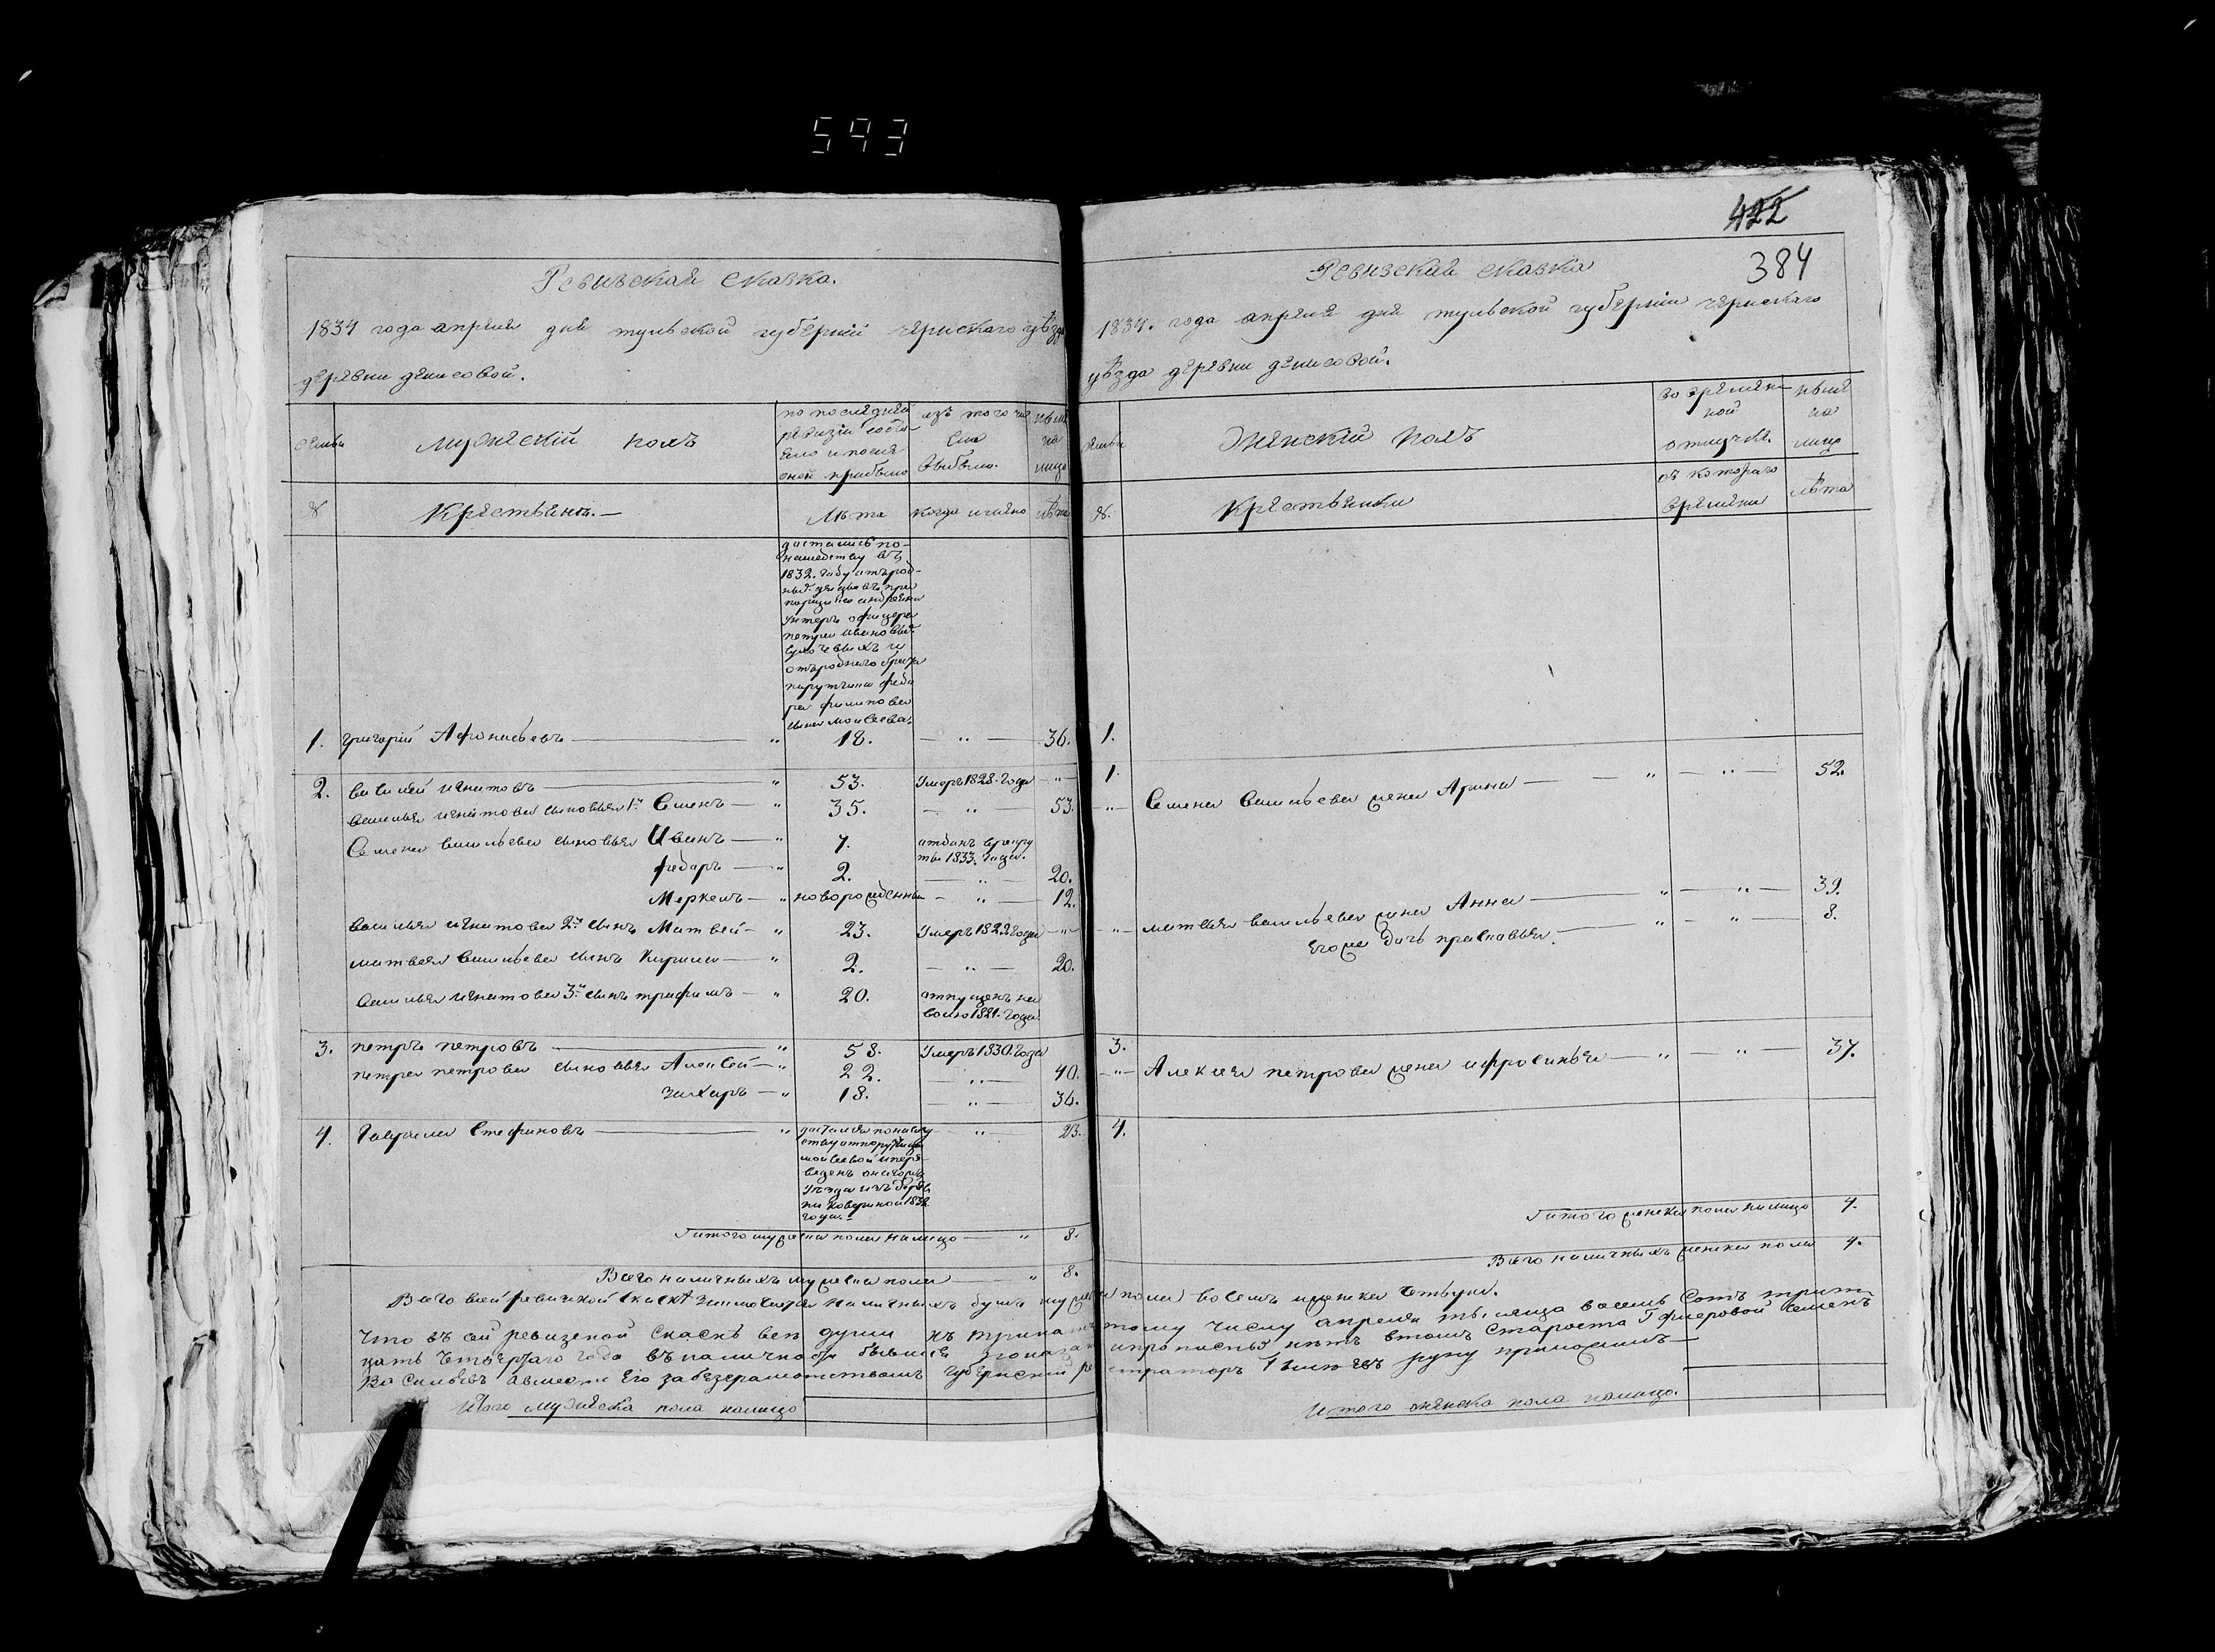 593
422
384
Ревизская сказка.
1834 года апреля дня тульской губерний чернскаго уѣзда
деревни денисовой.
семьи
мужескій полъ
по последней
ревизіи состо
яло и после
оной прибыло
изъ того чи
сла
выбыло.
ныне
на
лицо
№
Крестьяня.—
Лѣта
когда имянно
лѣта
достались по
1832. году отърод-
унтеръ офицера
петра
отъроднаго брата
федо
ра филипова
сына моисеева.
1. григорій Афонасьевъ — " 18. — " — 36.
2. василей игнатовъ — " 53. Умеръ 1828. года — " —
василья игнатова сыновья 1й Семенъ — " 35. — " 53.
Семена васильева сыновья Иванъ — " 7. отданъ врекру
ты 1833. года.
федоръ — " 2. — " — 20.
Меркелъ — " новорожденный — " — 12.
василья игнатова 2й сынъ Матвей — " 23. Умеръ 1829 года — " —
матвея васильева сынъ Кирила — " 2. — " — 20.
василья игнатова 3й сынъ трафимъ — " 20. отпущенъ на
волю 1821. года.
3. петръ петровъ — " 58. Умеръ 1830. года
петра петрова сыновья Алексей — " 22. — " — 40.
захаръ — " 18. — " — 36.
4. Гаврила Стефановъ — " — " — 23.
года.
Iитого мужеска пола налицо — " 8.
Всего наличныхъ мужеска пола — " 8.
Ревизская сказка
1834. года апреля дня тульской губерніи чернскаго
уѣзда деревни денисовой.
семьи
Женскій полъ
во времян-
ной
отлучке.
ныне
на
лицо
№.
Крестьянки
съ котораго
времяни
лѣта
1.
1. Семена Васильева жена Арина — " — " — 52.
— " — матвея васильева жена Анна — " — " — 39.
его же дочь прасковья. — " — " — 8.
3.
— " — Алексея петрова жена ифросинья — " — " — 37.
4.
Iитого женска пола налицо 4.
Всего наличныхъ женска пола 4.
Всего всей ревизкой скаскѣ заключается наличныхъ душъ мужеска пола восемь женска четыри.
Что въ сей ревизской скаскѣ всѣ души къ тринатцатому числу апреля тысяща восемь сотъ трит
цать четвертаго года въ наличности бывшіи показаны ипрописныхъ нѣтъ втомъ Староста Семенъ
Васильевъ авместо Его забезграмотствомъ губернскій регистраторъ руку приложилъ—
Итого мужеска пола налицо
Итого женска пола налицо.